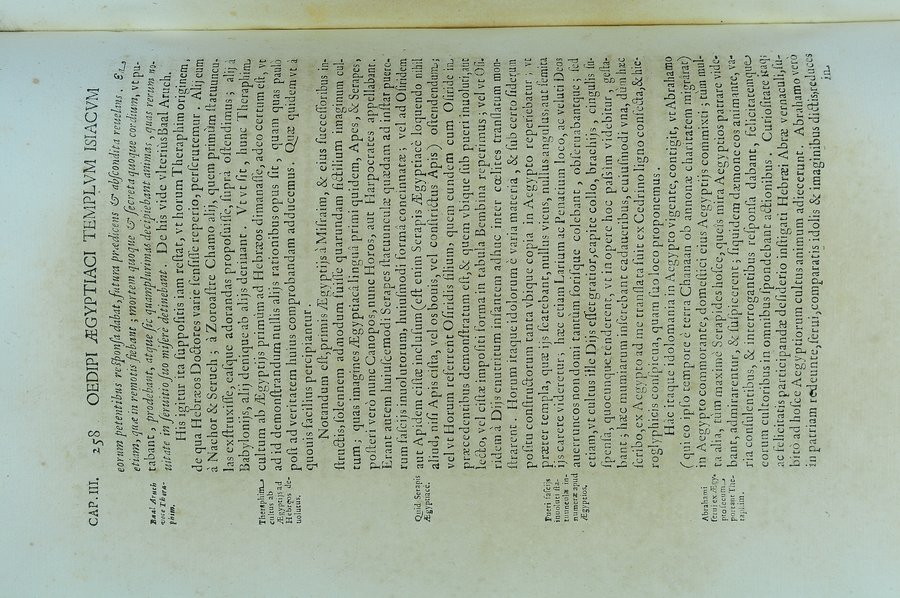 CAP. III. 258 OEDIPI ÆGYPTIACI TEMPLVM ISIACVM
eorum petentibus reſponſa dabat, futura prædicens & abſcondita reuelans. &
etiam, quæ in remotis fiebant; mortem quoque & ſecreta quoque cordium, vt pu-
tabant, prodebant, atque ſic quamplurimas decipiebant animas, quas rerum no-
uitate in ſeruitio ſuo miſerè detinebant. De his vide vlterius Baal Aruch.
Baal Aruch
voce Thera-
phim.
His igitur ita ſuppoſitis iam reſtat, vt horum Theraphim originem,
de qua Hebræos Doctores variè ſenſiſſe reperio, perſcrutemur. Alij eum
à Nachor & Seruch; à Zoroaſtre Chamo alij, quem primùm ſtatuuncu-
las exſtruxiſſe, eaſque adorandas propoſuiſſe, ſupra oſtendimus; alij à
Babylonijs, alij denique ab alijs deriuant. Vt vt ſit, hunc Theraphim
cultum ab Ægyptijs primùm ad Hebræos dimanaſſe, adeò certum eſt, vt
ad id demonſtrandum nullis alijs rationibus opus ſit, quam quas paulò
poſt ad veritatem huius comprobandam adducemus. Quæ quidem vt à
quouis facilius percipiantur.
Theraphim
cultus ab
Ægyptijs ad
Hebræos de-
uolutus.
Notandum eſt, primis Ægyptijs à Miſraim, & eius ſucceſſoribus in-
ſtructis, ſolennem admodum fuiſſe quarundam fictilium imaginum cul-
tum; quas imagines Ægyptiacâ linguâ primi quidem, Apes, & Serapes,
poſteri verò nunc Canopos, nunc Horos, aut Harpocrates appellabant.
Erant autem huiuſcemodi Serapes ſtatunculæ quædam ad inſtar puero-
rum faſcijs inuolutorum, huiuſmodi formâ concinnatæ; vel ad Oſiridem
aut Apidem ciſtæ incluſum (eſt enim Serapis Ægyptiacè loquendo nihil
aliud, niſi Apis ciſta, vel os bouis, vel conſtrictus Apis) oſtendendum;
vel vt Horum referrent Oſiridis filium, quem eundem cum Oſiride in-
libris demonſtratum eſt, & quem vbique ſub pueri inuoluti, aut
lecto, vel ciſtæ impoſiti forma in tabula Bembina reperimus; vel vt Oſi-
ridem à Deæ nutritum infantem adhuc inter cœlites translatum mon-
ſtrarent. Horum itaque idolorum è varia materia, & ſub certo ſiderum
poſitu conſtructorum tanta vbique copia in Ægypto reperiebatur; vt
præter templa, quæ ijs ſcatebant, nullus vicus, nullus angulus, aut ſemita
ijs carere videretur; hæc etiam Larium ac Penatium loco, ac veluti Deos
auerruncos nondomi tantùm ſuoſque colebant, obſeruabantque; ſed
etiam, vt cultus ille Dijs eſſet gratior, capite collo, brachijs, cingulis ſu-
ſpenſa, quocunque tenderent, vt in opere hoc paſsim videbitur, geſta-
bant; hæc mumiarum inferebant cadaueribus, cuiuſmodi vna, dum hæc
ſcribo, ex Ægypto ad me tranſlata fuit ex Cedrino ligno confecta, & hie-
roglyphicis conſpicua, quam ſuo loco proponemus.
Quid Serapis
Ægyptiacè.
Pueri faſcijs
inuoluti ſta-
tunculæ in-
numeræ apud
Ægyptios.
Hâc itaque idolomania in Ægypto vigente, contigit, vt Abrahamo
(qui eo ipſo tempore è terra Chanaan ob annonæ charitatem migrârat)
in Ægypto commorante, domeſtici eius Ægyptijs commixti; cum mul-
ta alia, tum maximè Serapides hoſce, queis mira Ægyptios patrare vide-
bant, admirarentur, & ſuſpicerent; ſiquidem dæmone eos animante, va-
ria conſulentibus, & interrogantibus reſponſa dabant, felicitatemque
eorum cultoribus in omnibus ſpondebant actionibus. Curioſitate itaq;
ac felicitatis participandæ deſiderio inſtigati Hebræi Abræ vernaculi, ſu-
bitò ad hoſce Ægyptiorum cultus animum adiecerunt. Abrahamo verò
in patriam redeunte, ſerui, comparatis idolis & imaginibus dictis reduces
in
Abrahami
ſerui ex Ægy-
pto ſecum aſ-
portant The-
raphim.